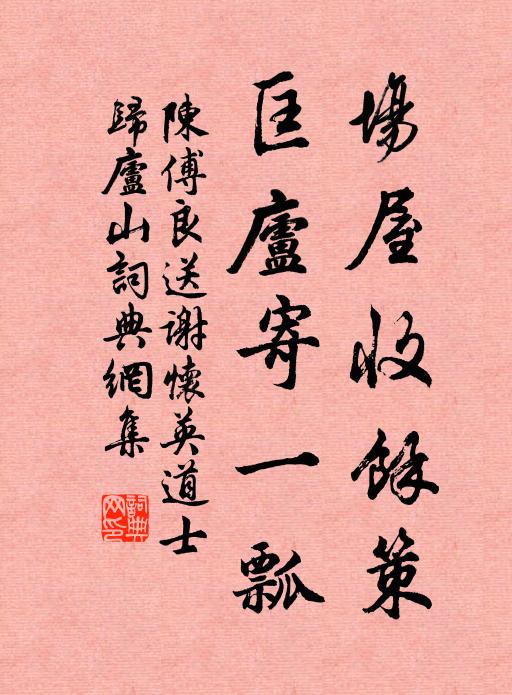 場屋收餘策
匡廬寄一瓢
陳傅良送謝懷英道士
歸廬山詞典網集
詞典網印